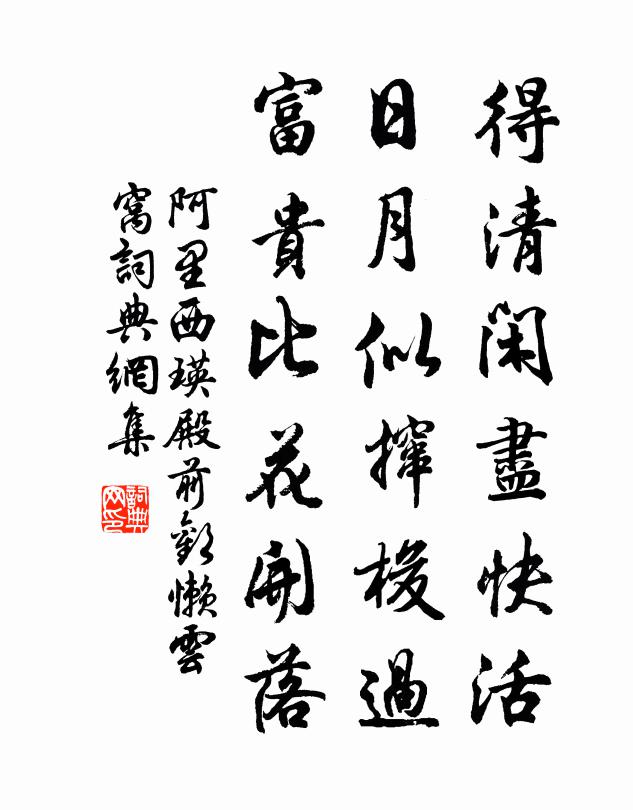 得清閑盡快活
日月似撺梭過
富貴比花開落
阿里西瑛殿前歡懶雲
窩詞典網集
詞典
网印